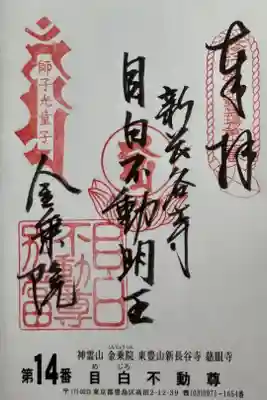 奉拝
新長谷寺
目白不動明王
金乗院
師子光童子
目白不動尊
神霊山 金乗院 東豊山新長谷寺 慈眼寺
第14番 目白不動尊
めじろ
東京都豊島区高田2-12-39 ☎(03)(3971)-1654番